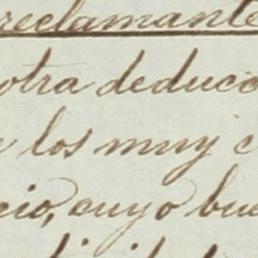 reclamante
otra deduc
los muy c
cio, cuyo bue